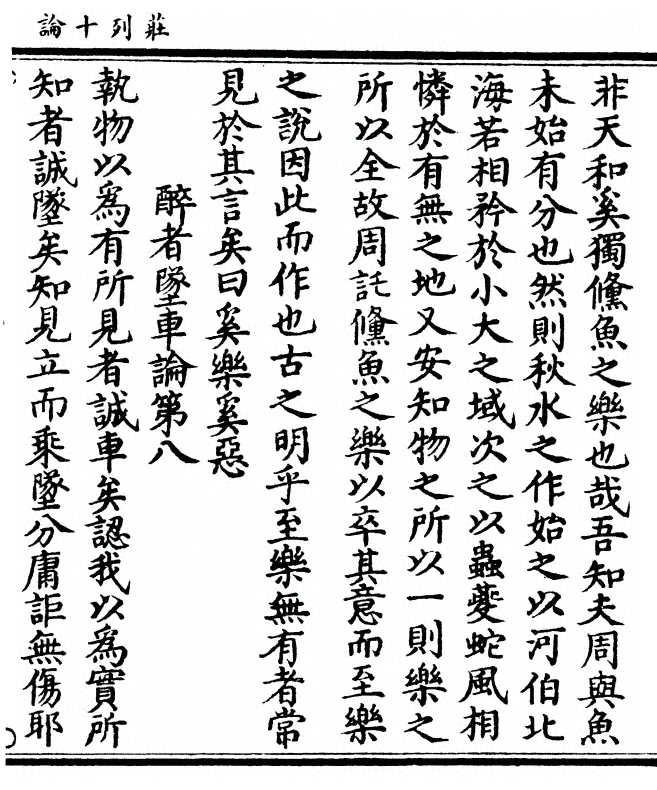 莊列十論
非天和奚獨儵魚之樂也哉吾知夫周與魚
未始有分也然則秋水之作始之以河伯北
海若相矜於小大之域次之以蟲蔓蛇風相
憐於有無之地又安知物之所以一則樂之
所以全故周託儵魚之樂以卒其意而至樂
之說因此而作也古之明乎至樂無有者常
見於其言矣曰奚樂奚惡
醉者墜車論第八
執物以為有所見者誠車矣認我以為實所
知者誠墜矣知見立而乘墜分庸詎無傷耶